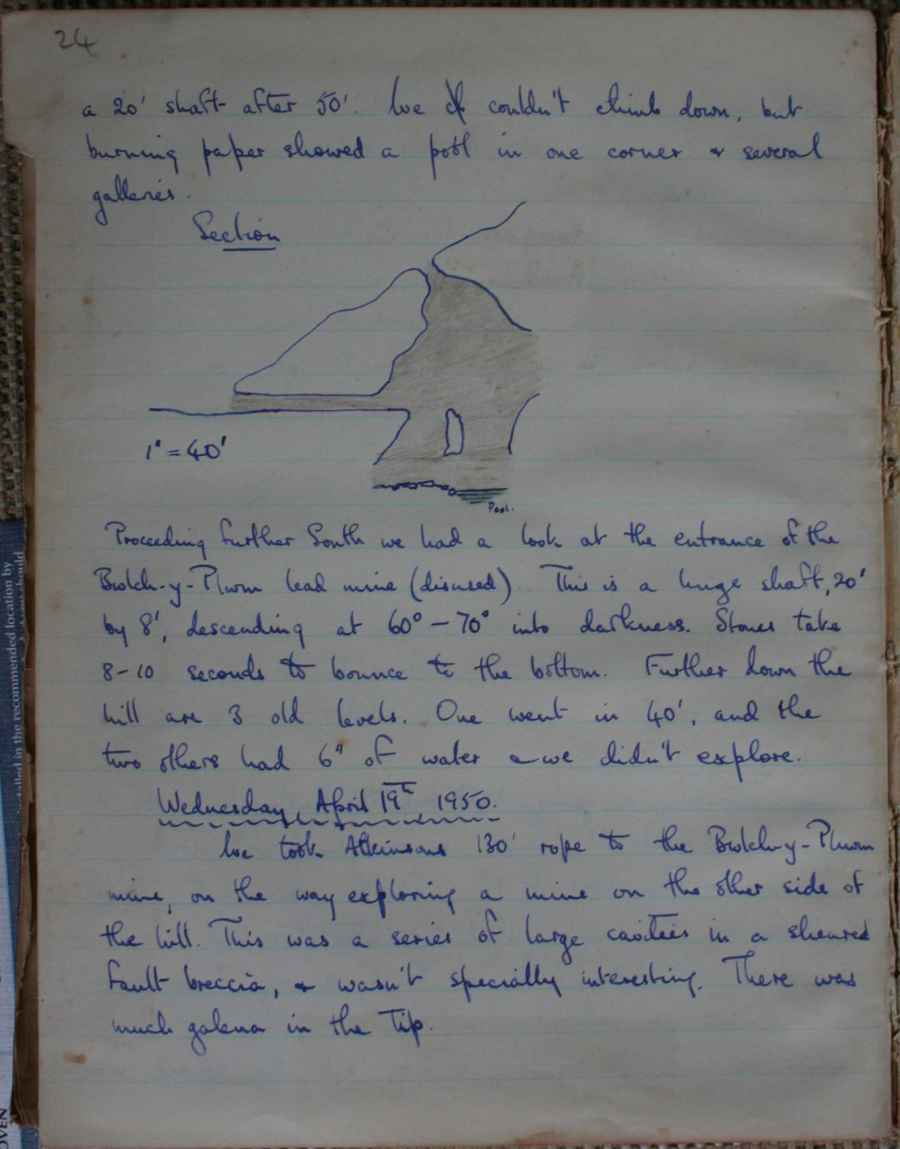 24
a 20' shaft after 50'. We couldn't climb down, but
burning paper showed a pool in one corner & several
galleries.
Section
1" = 40'
Pool.
Proceeding further South we had a look at the entrance of the
Bwlch-y-Plwm lead mine (disused) This is a huge shaft, 20'
by 8', descending at 60° - 70° into darkness. Stones take
8-10 seconds to bounce to the bottom. Further down the
hill are 3 old levels. One went in 40', and the
two others had 6" of water & we didn't explore.
Wednesday April 19th 1950.
We took Atkinsons 130' rope to the Bwlch-y-Plwm
mine, on the way exploring a mine on the other side of
the hill. This was a series of large cavities in a sheared
fault breccia, & wasn't specially interesting. There was
much galena in the Tip.
in the recommended location by
OVEN